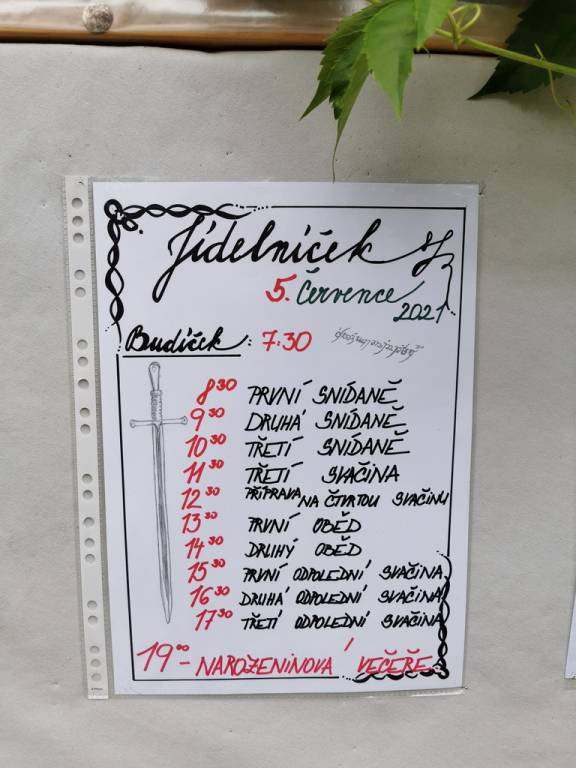 Jídelníček
5. Července
2021
Budíček: 7:30
8³⁰ PRVNÍ SNÍDANĚ
9³⁰ DRUHÁ SNÍDANĚ
10³⁰ TŘETÍ SNÍDANĚ
11³⁰ TŘETÍ SVAČINA
12³⁰ PŘÍPRAVA NA ČTVRTOU SVAČINU
13³⁰ PRVNÍ OBĚD
14³⁰ DRUHÝ OBĚD
15³⁰ PRVNÍ ODPOLEDNÍ SVAČINA
16³⁰ DRUHÁ ODPOLEDNÍ SVAČINA
17³⁰ TŘETÍ ODPOLEDNÍ SVAČINA
19⁰⁰ - NAROZENINOVÁ VEČEŘE